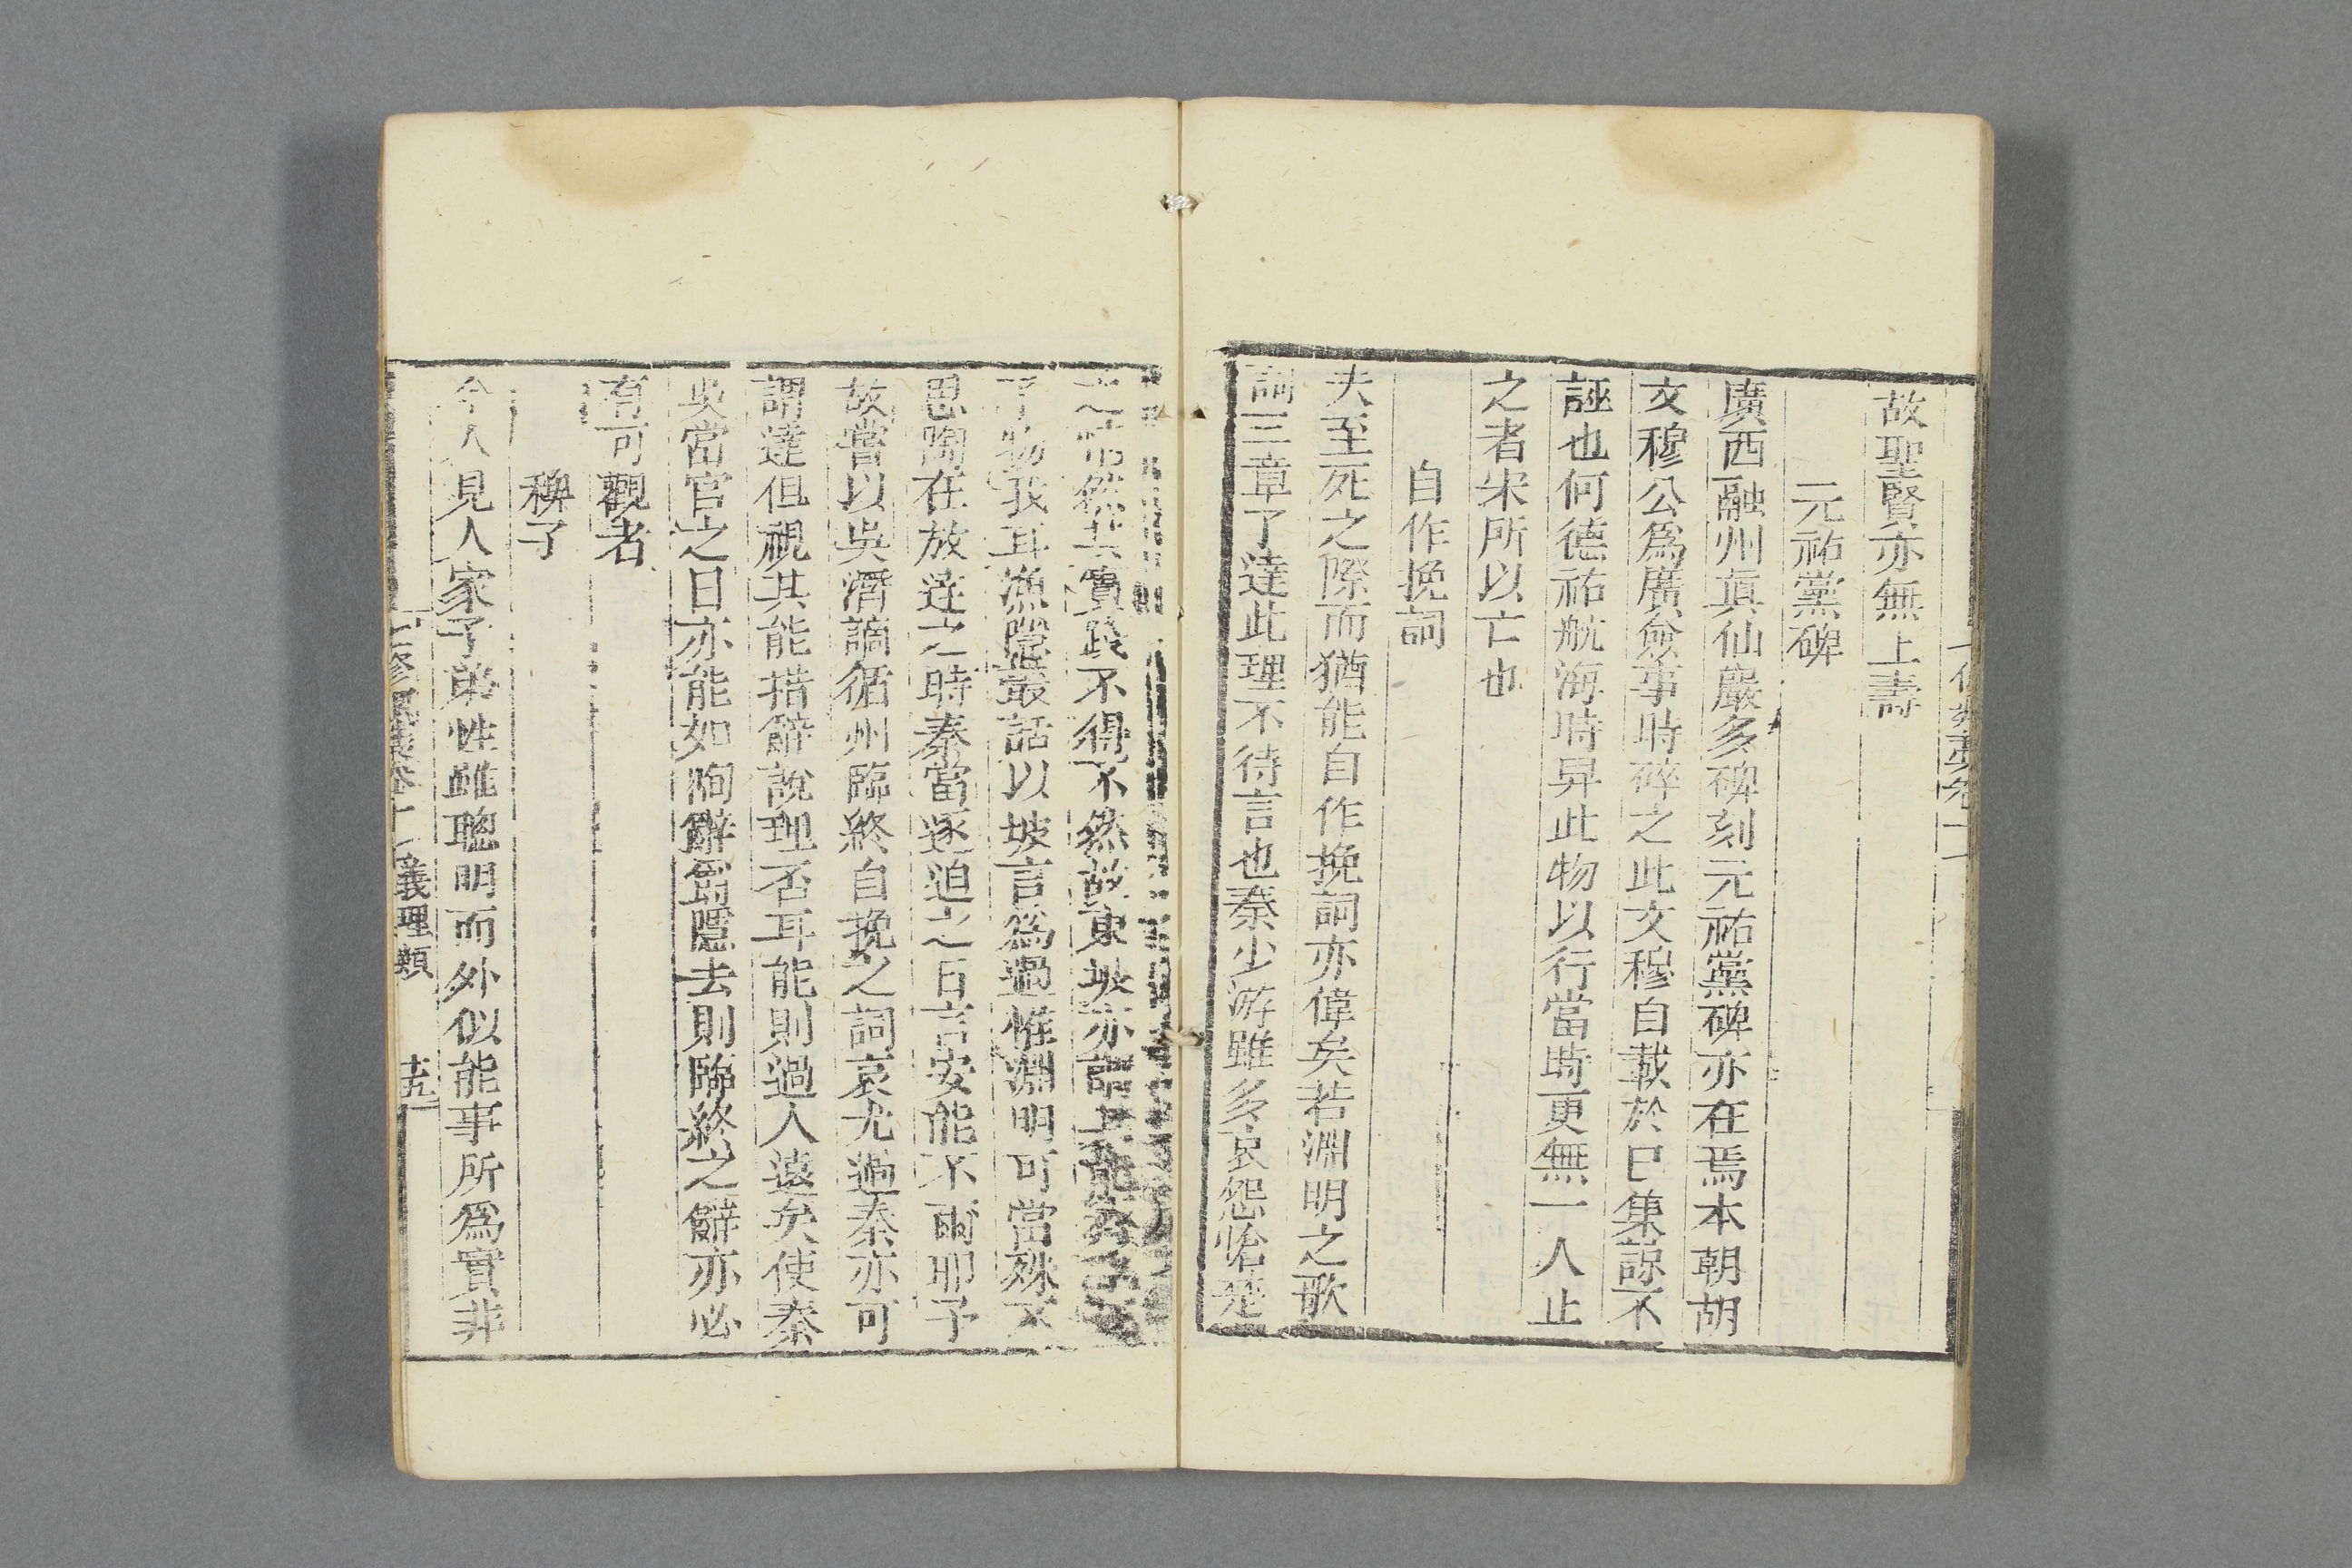 故聖賢亦無上壽
元祐黨碑
廣西融州眞仙巖多碑刻元祐黨碑亦在焉本朝胡
文穆公爲廣僉事時碎之此文穆自載於巳集諒不
誣也何德祐航海時舁此物以行當時更無一人止
之者宋所以亡也
自作挽詞
夫至死之際而猶能自作挽詞亦偉矣若淵明之歌
詞三章了達此理不待言也秦少游雖多哀怨愴楚
之情然其實最不得不然故東坡亦
了物我耳漁隱叢話以坡言爲過惟淵明可當殊不
思陶在放逹之時秦當逐迫之日言安能不爾耶予
故嘗以吳潛謫循州臨終自挽之詞哀尤過秦亦可
謂達但視其能措辭說理否耳能則過人遠矣使秦
吳當官之日亦能如陶辭爵隱去則臨終之辭亦必
有可觀者
稺子
今人見人家子弟性雖聰明而外似能事所爲實非
七修類藁卷十 義理類 十五